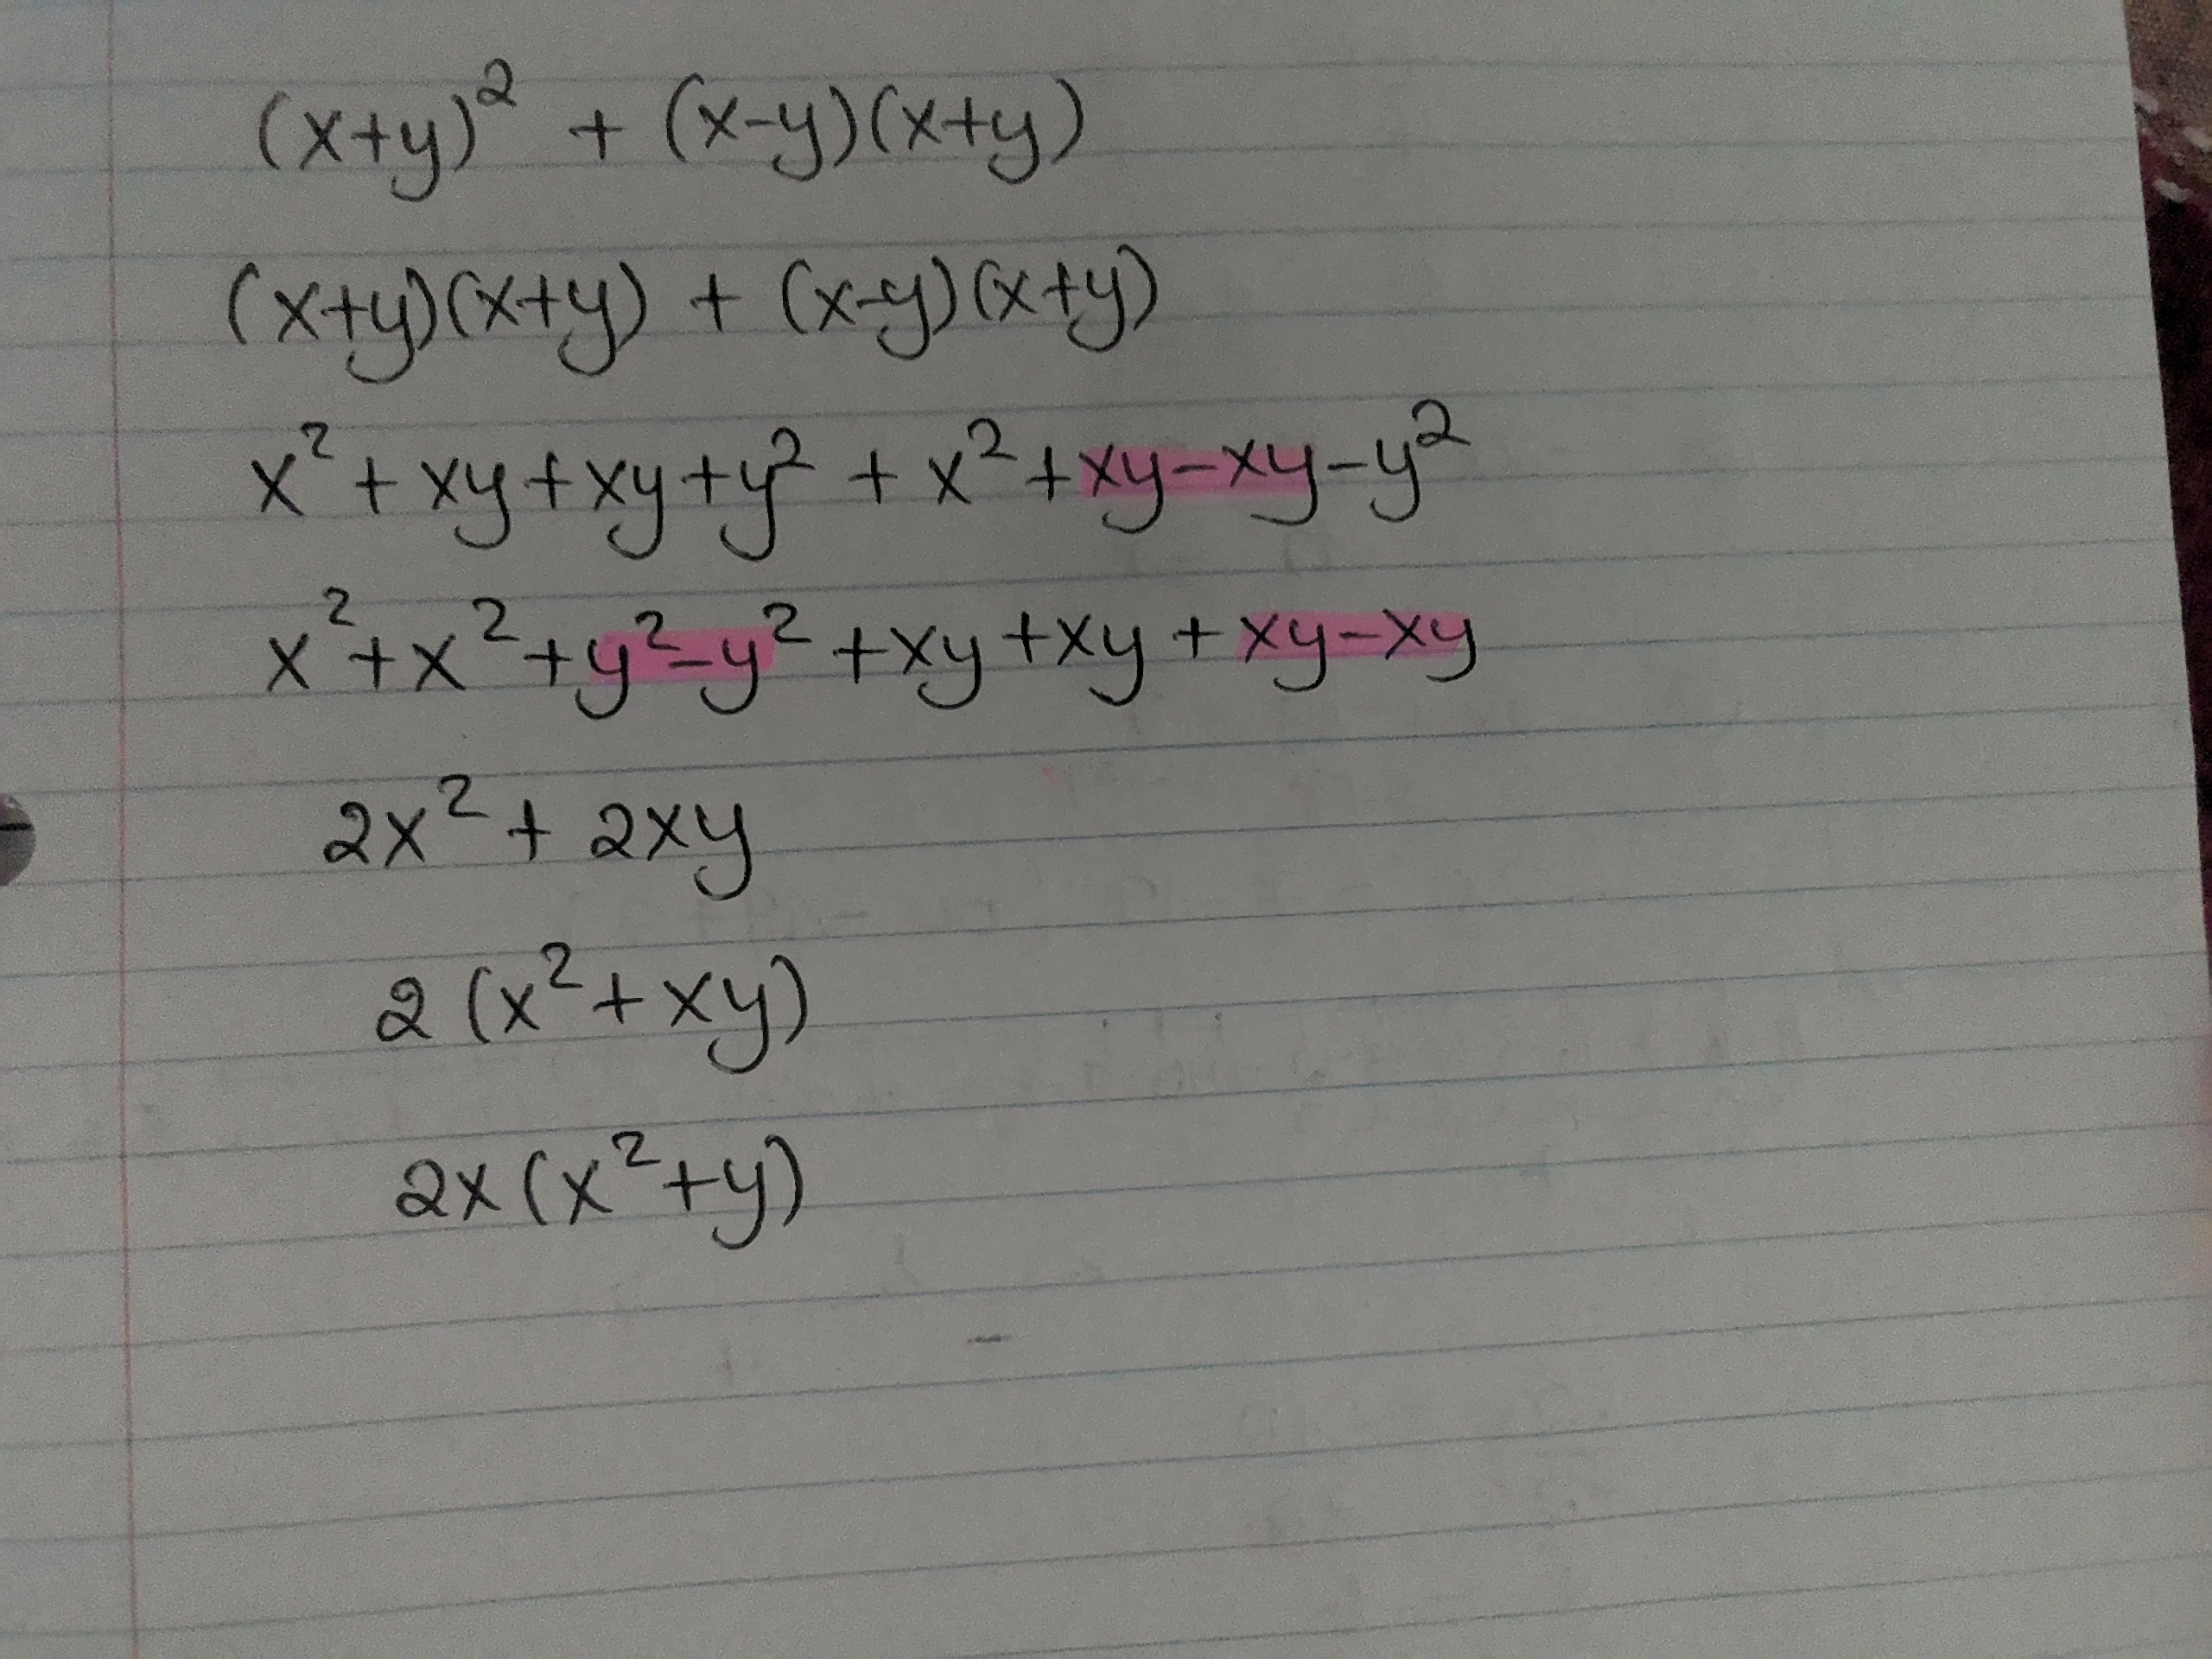 (x+y)² + (x-y)(x+y)
(x+y)(x+y) + (x-y)(x+y)
x² + xy + xy + y² + x² + xy - xy - y²
x² + x² + y² - y² + xy + xy + xy - xy
2x² + 2xy
2 (x² + xy)
2x (x² + y)